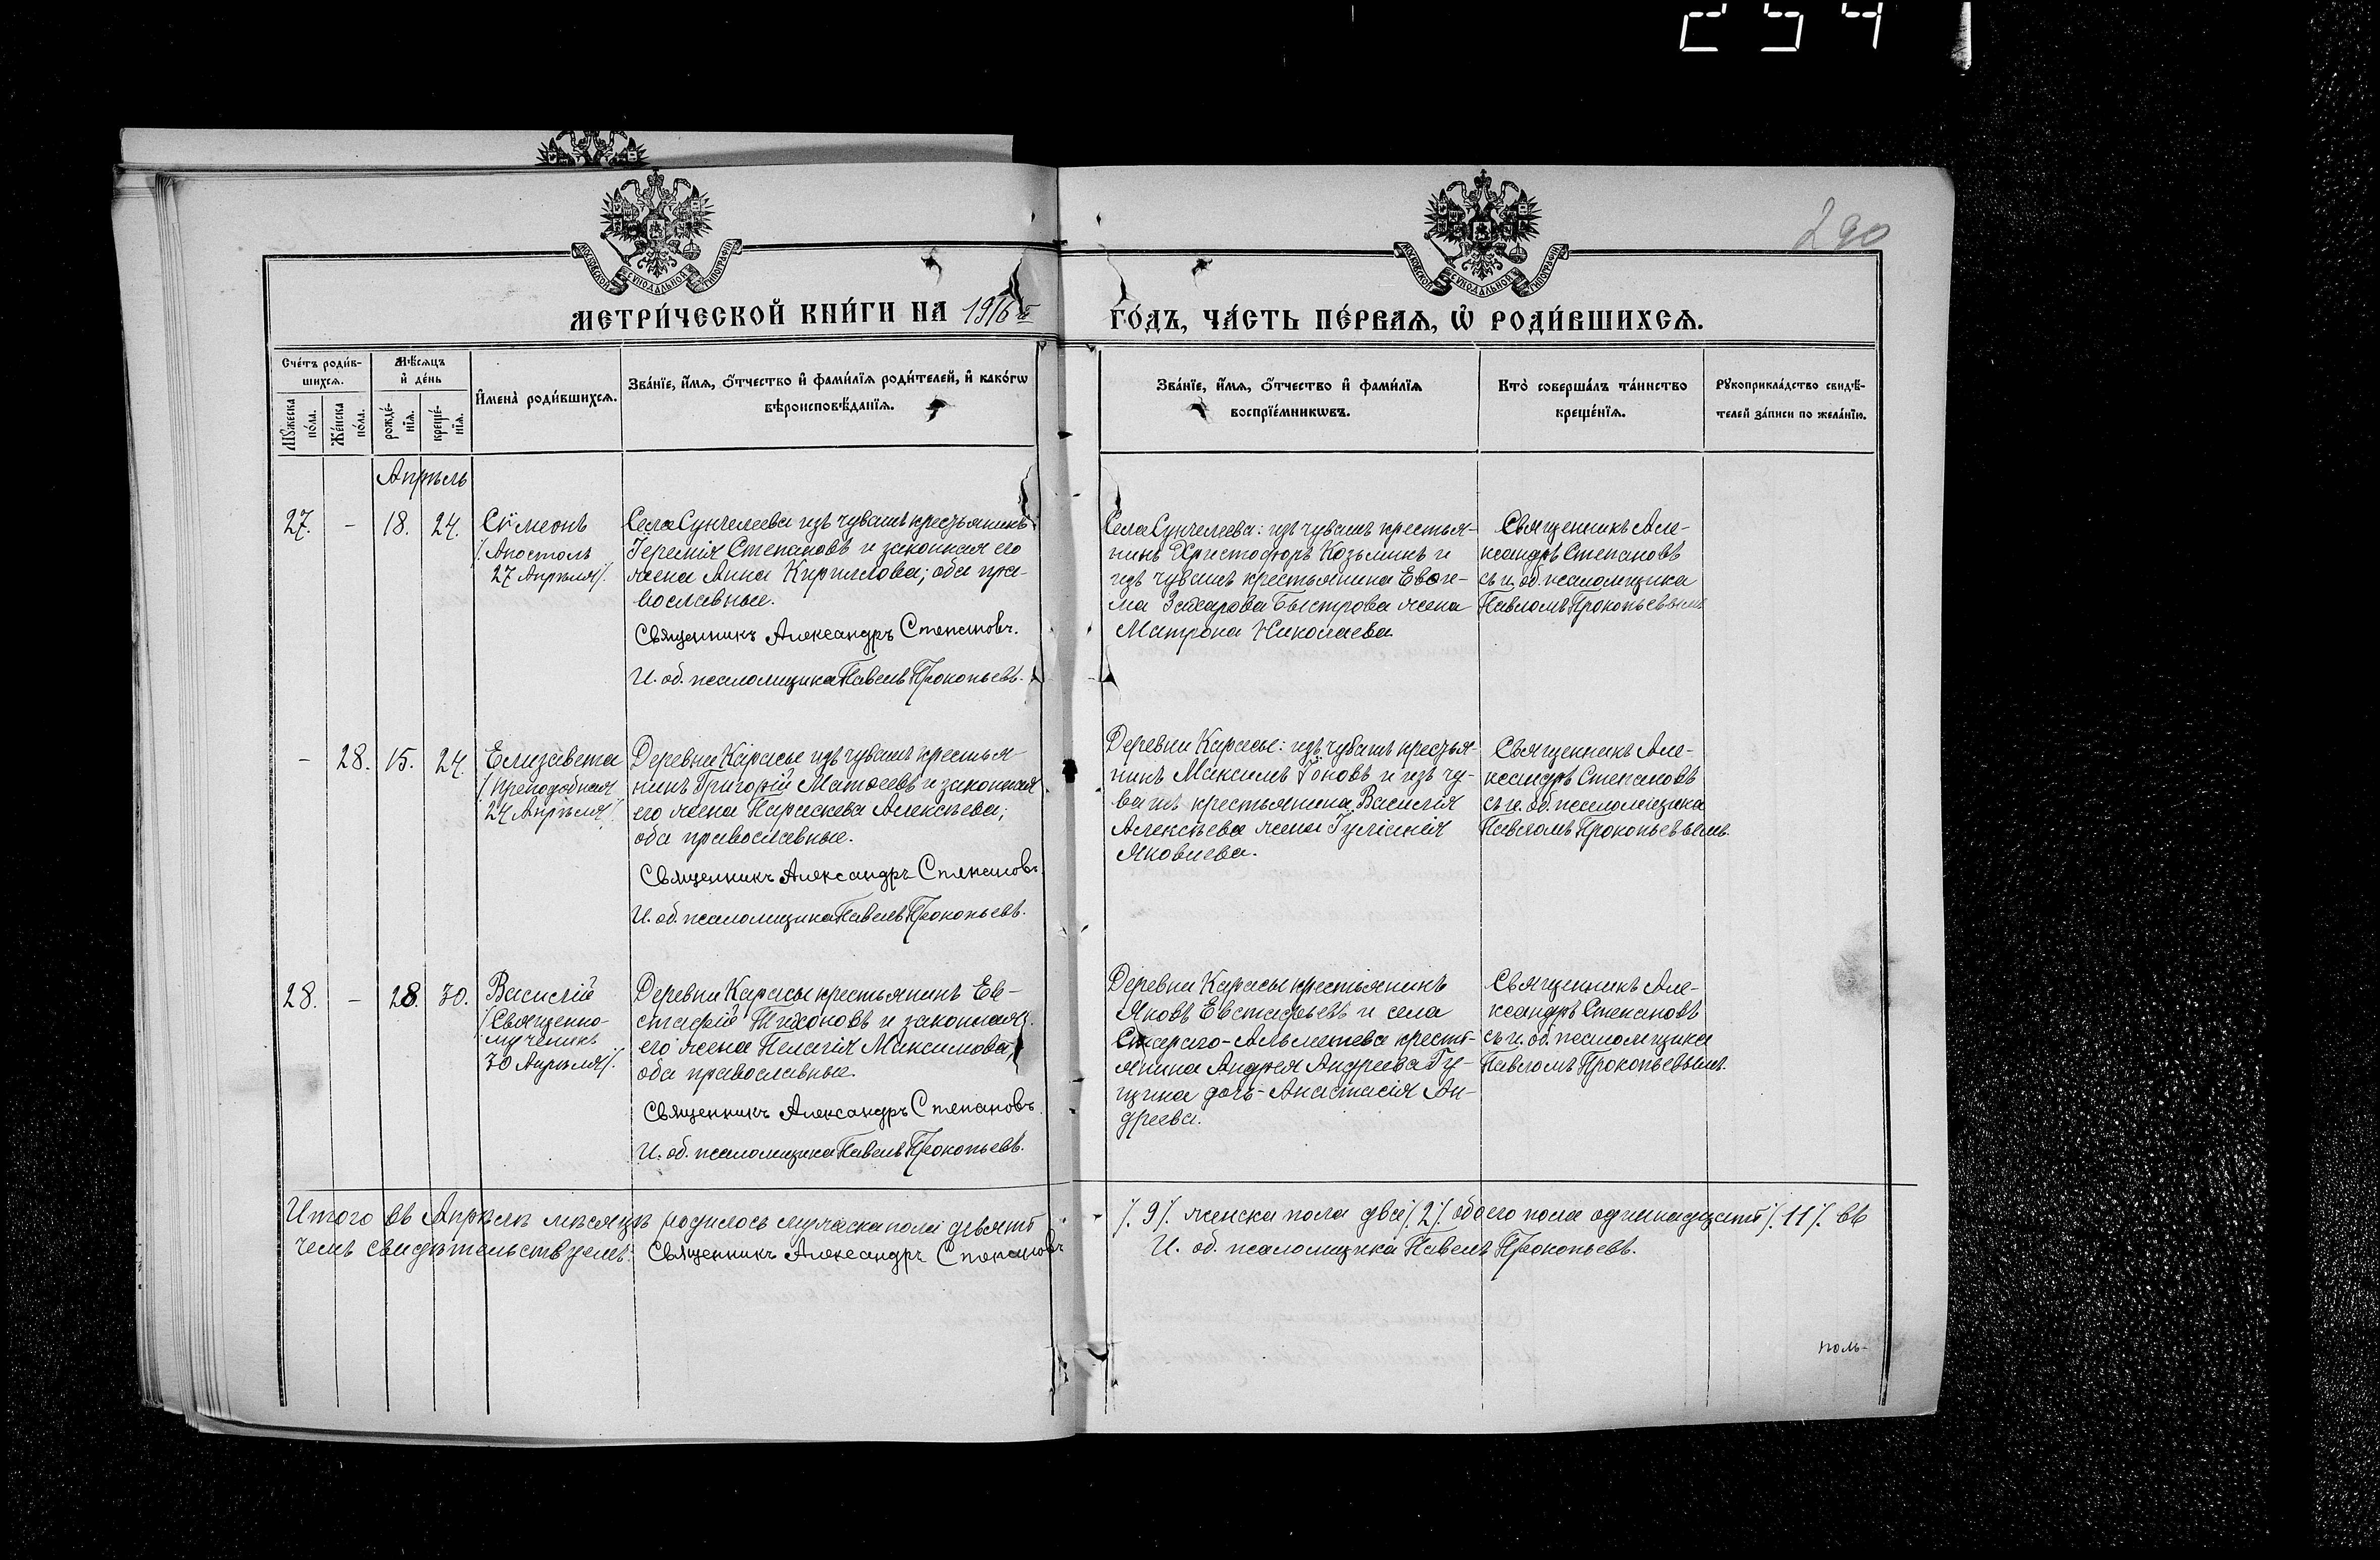 254
290
МОСКОВСКОЙ СѴНОДАЛЬНОЙ ТИПОГРАФІИ
МОСКОВСКОЙ СѴНОДАЛЬНОЙ ТИПОГРАФІИ
МЕТРИ́ЧЕСКОЙ КНИ́ГИ НА 1916 й
ГО́ДЪ, ЧА́СТЬ ПЕ́РВАѦ, Ѡ҆ РОДИ́ВШИХСѦ.
Сче́тъ роди́в-
шихсѧ.
Мꙋ́жеска
по́ла.
Же́нска
по́ла.
Мѣ́сѧцъ
и҆ де́нь
рожде́-
нїѧ.
креще́-
нїѧ.
И҆мена̀ роди́вшихсѧ.
Зва́нїе, и҆́мѧ, ѻ҆́тчество и҆ фами́лїѧ роди́телей, и҆ како́гѡ
вѣроисповѣ́данїѧ.
Зва́нїе, и҆́мѧ, ѻ҆́тчество и҆ фами́лїѧ
воспрїе́мникѡвъ.
Кто̀ соверша́лъ та́инство
креще́нїѧ.
Рꙋкоприкла́дство свидѣ́-
телей за́писи по жела́нїю.
Апрѣль
27. - 18. 24.
Сѵмеонъ
/. Апостолъ
27 Апрѣля/.
Села Сунчелеева изъ чувашъ крестьянинъ
Іеремія Степановъ и законная его
жена Анна Кириллова; оба пра-
вославные.
Священникъ Александръ Степановъ.
И. об. псаломщика Павелъ Прокопьевъ.
Села Сунчелеева: изъ чувашъ крестья-
нинъ Христофоръ Козьминъ и
изъ чувашъ крестьянина Евѳи-
ма Быстрова жена
Матрона Николаева.
Священникъ Але-
ксандръ Степановъ
съ и. об. псаломщика
Павломъ Прокопьевымъ
- 28. 15. 24.
Елизавета
/. преподобная
24 Апрѣля/.
Деревни Карасы изъ чувашъ крестья
нинъ Григорій Матѳеевъ и законная
его жена Параскева Алексѣева;
оба православные.
Священникъ Александръ Степановъ.
И. об. псаломщика Павелъ Прокопьевъ.
Деревни Карасы: изъ чувашъ крестья-
нинъ Максимъ и изъ чу-
вашъ крестьянина Василія
Алексѣева жена Іуліанія
Яковлева.
Священникъ Але-
ксандръ Степановъ
съ и. об. псаломщика
Павломъ Прокопьевымъ.
28. - 28. 30.
Василій
/. Священно-
мученикъ
30 Апрѣля/.
Деревни Карасы крестьянинъ Ев-
стафій Тихоновъ и законная
его жена Пелагія Максимова,
оба православные.
Священникъ Александръ Степановъ.
И. об. псаломщика Павелъ Прокопьевъ.
Деревни Карасы крестьянинъ
Яковъ Евстафьевъ и села
Стараго-Альметева кресть-
янина Андрея Андреева Гу-
щина дочь Анастасія Ан-
дреева.
Священникъ Але-
ксандръ Степановъ
съ и. об. псаломщика
Павломъ Прокопьевымъ.
Итого въ Апрѣлѣ мѣсяцѣ родилось мужеска пола девять /. 9/. женска пола два /. 2/. обоего пола одиннадцать /. 11/. въ
чемъ свидѣтельствуемъ: Священникъ Александръ Степановъ И. об. псаломщика Павелъ Прокопьевъ.